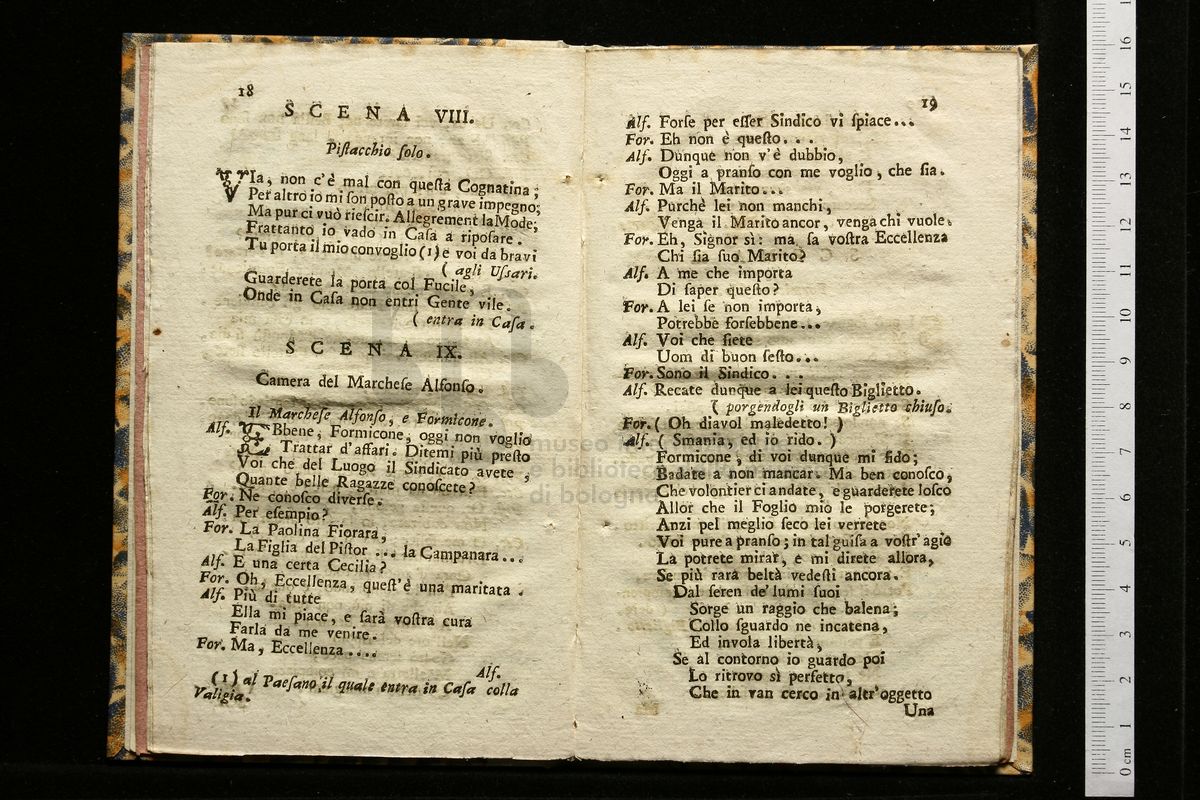 18
SCENA VIII.
Piſtacchio ſolo.
VIa, non c'è mal con queſta Cognatina;
Per altro io mi ſon poſto a un grave impegno;
Ma pur ci vuò rieſcir. Allegrement la Mode;
Frattanto io vado in Caſa a ripoſare.
Tu porta il mio convoglio (1) e voi da bravi
( agli Uſſari.
Guarderete la porta col Fucile,
Onde in Caſa non entri Gente vile.
( entra in Caſa.
SCENA IX.
Camera del Marcheſe Alfonſo.
Il Marcheſe Alfonſo, e Formicone.
Alf. EBbene, Formicone, oggi non voglio
Trattar d'affari. Ditemi più preſto
Voi che del Luogo il Sindicato avete,
Quante belle Ragazze conoſcete?
For. Ne conoſco diverſe.
Alf. Per eſempio?
For. La Paolina Fiorara,
La Figlia del Piſtor ... la Campanara...
Alf. E una certa Cecilia?
For. Oh, Eccellenza, queſt'è una maritata.
Alf. Più di tutte
Ella mi piace, e ſarà voſtra cura
Farla da me venire.
For. Ma, Eccellenza....
Alf.
(1) al Paeſano, il quale entra in Caſa colla
Valigia.
19
Alf. Forſe per eſſer Sindico vi ſpiace...
For. Eh non è queſto...
Alf. Dunque non v'è dubbio,
Oggi a pranſo con me voglio, che ſia.
For. Ma il Marito...
Alf. Purchè lei non manchi,
Venga il Marito ancor, venga chi vuole.
For. Eh, Signor sì: ma ſa voſtra Eccellenza
Chi ſia ſuo Marito?
Alf. A me che importa
Di ſaper queſto?
For. A lei ſe non importa,
Potrebbe forſebbene...
Alf. Voi che ſiete
Uom di buon ſeſto...
For. Sono il Sindico...
Alf. Recate dunque a lei queſto Biglietto.
( porgendogli un Biglietto chiuſo.
For. ( Oh diavol maledetto! )
Alf. ( Smania, ed io rido. )
Formicone, di voi dunque mi fido;
Badate a non mancar. Ma ben conoſco,
Che volontier ci andate, e guarderete loſco
Allor che il Foglio mio le porgerete;
Anzi pel meglio ſeco lei verrete
Voi pure a pranſo; in tal guiſa a voſtr'agio
La potrete mirar, e mi direte allora,
Se più rara beltà vedeſti ancora.
Dal ſeren de' lumi ſuoi
Sorge un raggio che balena;
Collo ſguardo ne incatena,
Ed invola libertà,
Se al contorno io guardo poi
Lo ritrovo sì perfetto,
Che in van cerco in altr'oggetto
Una
museo
e biblioteca
di bologna
0 cm 1 2 3 4 5 6 7 8 9 10 11 12 13 14 15 16